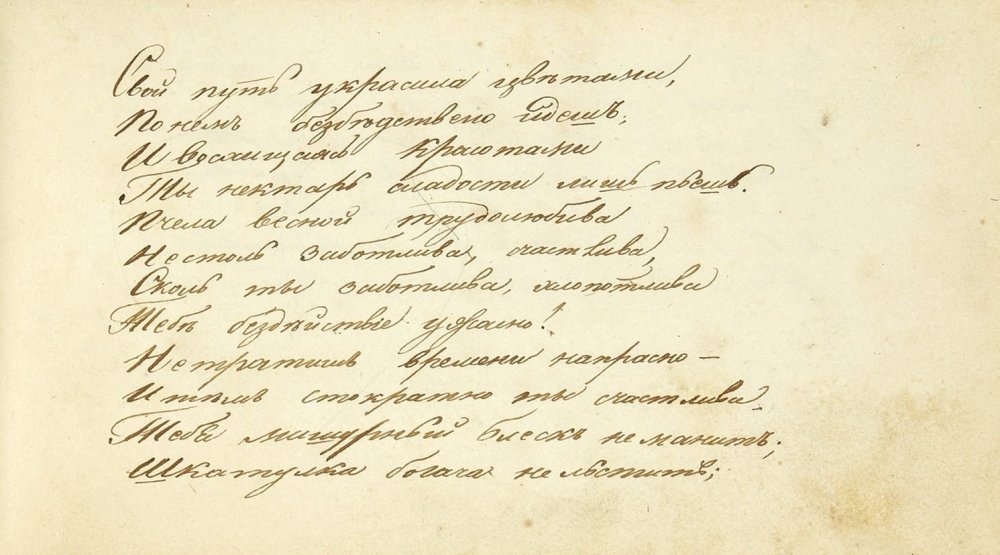 Свой путь украсила цвѣтами,
По немъ безбѣдствено идешъ;
И восхищаясь красотами
Ты нектаръ сладости лишь пьешь.
Пчела весной трудолюбива
Не столь заботлива, счастлива,
Сколь ты заботлива, хлопотлива
Тебѣ бездѣйствіе ужасно!
Не тратишь времени напрасно —
И тѣмъ стократно ты счастлива.
Тебя мишурный блескъ не манитъ;
Шкатулка богача не льститъ;